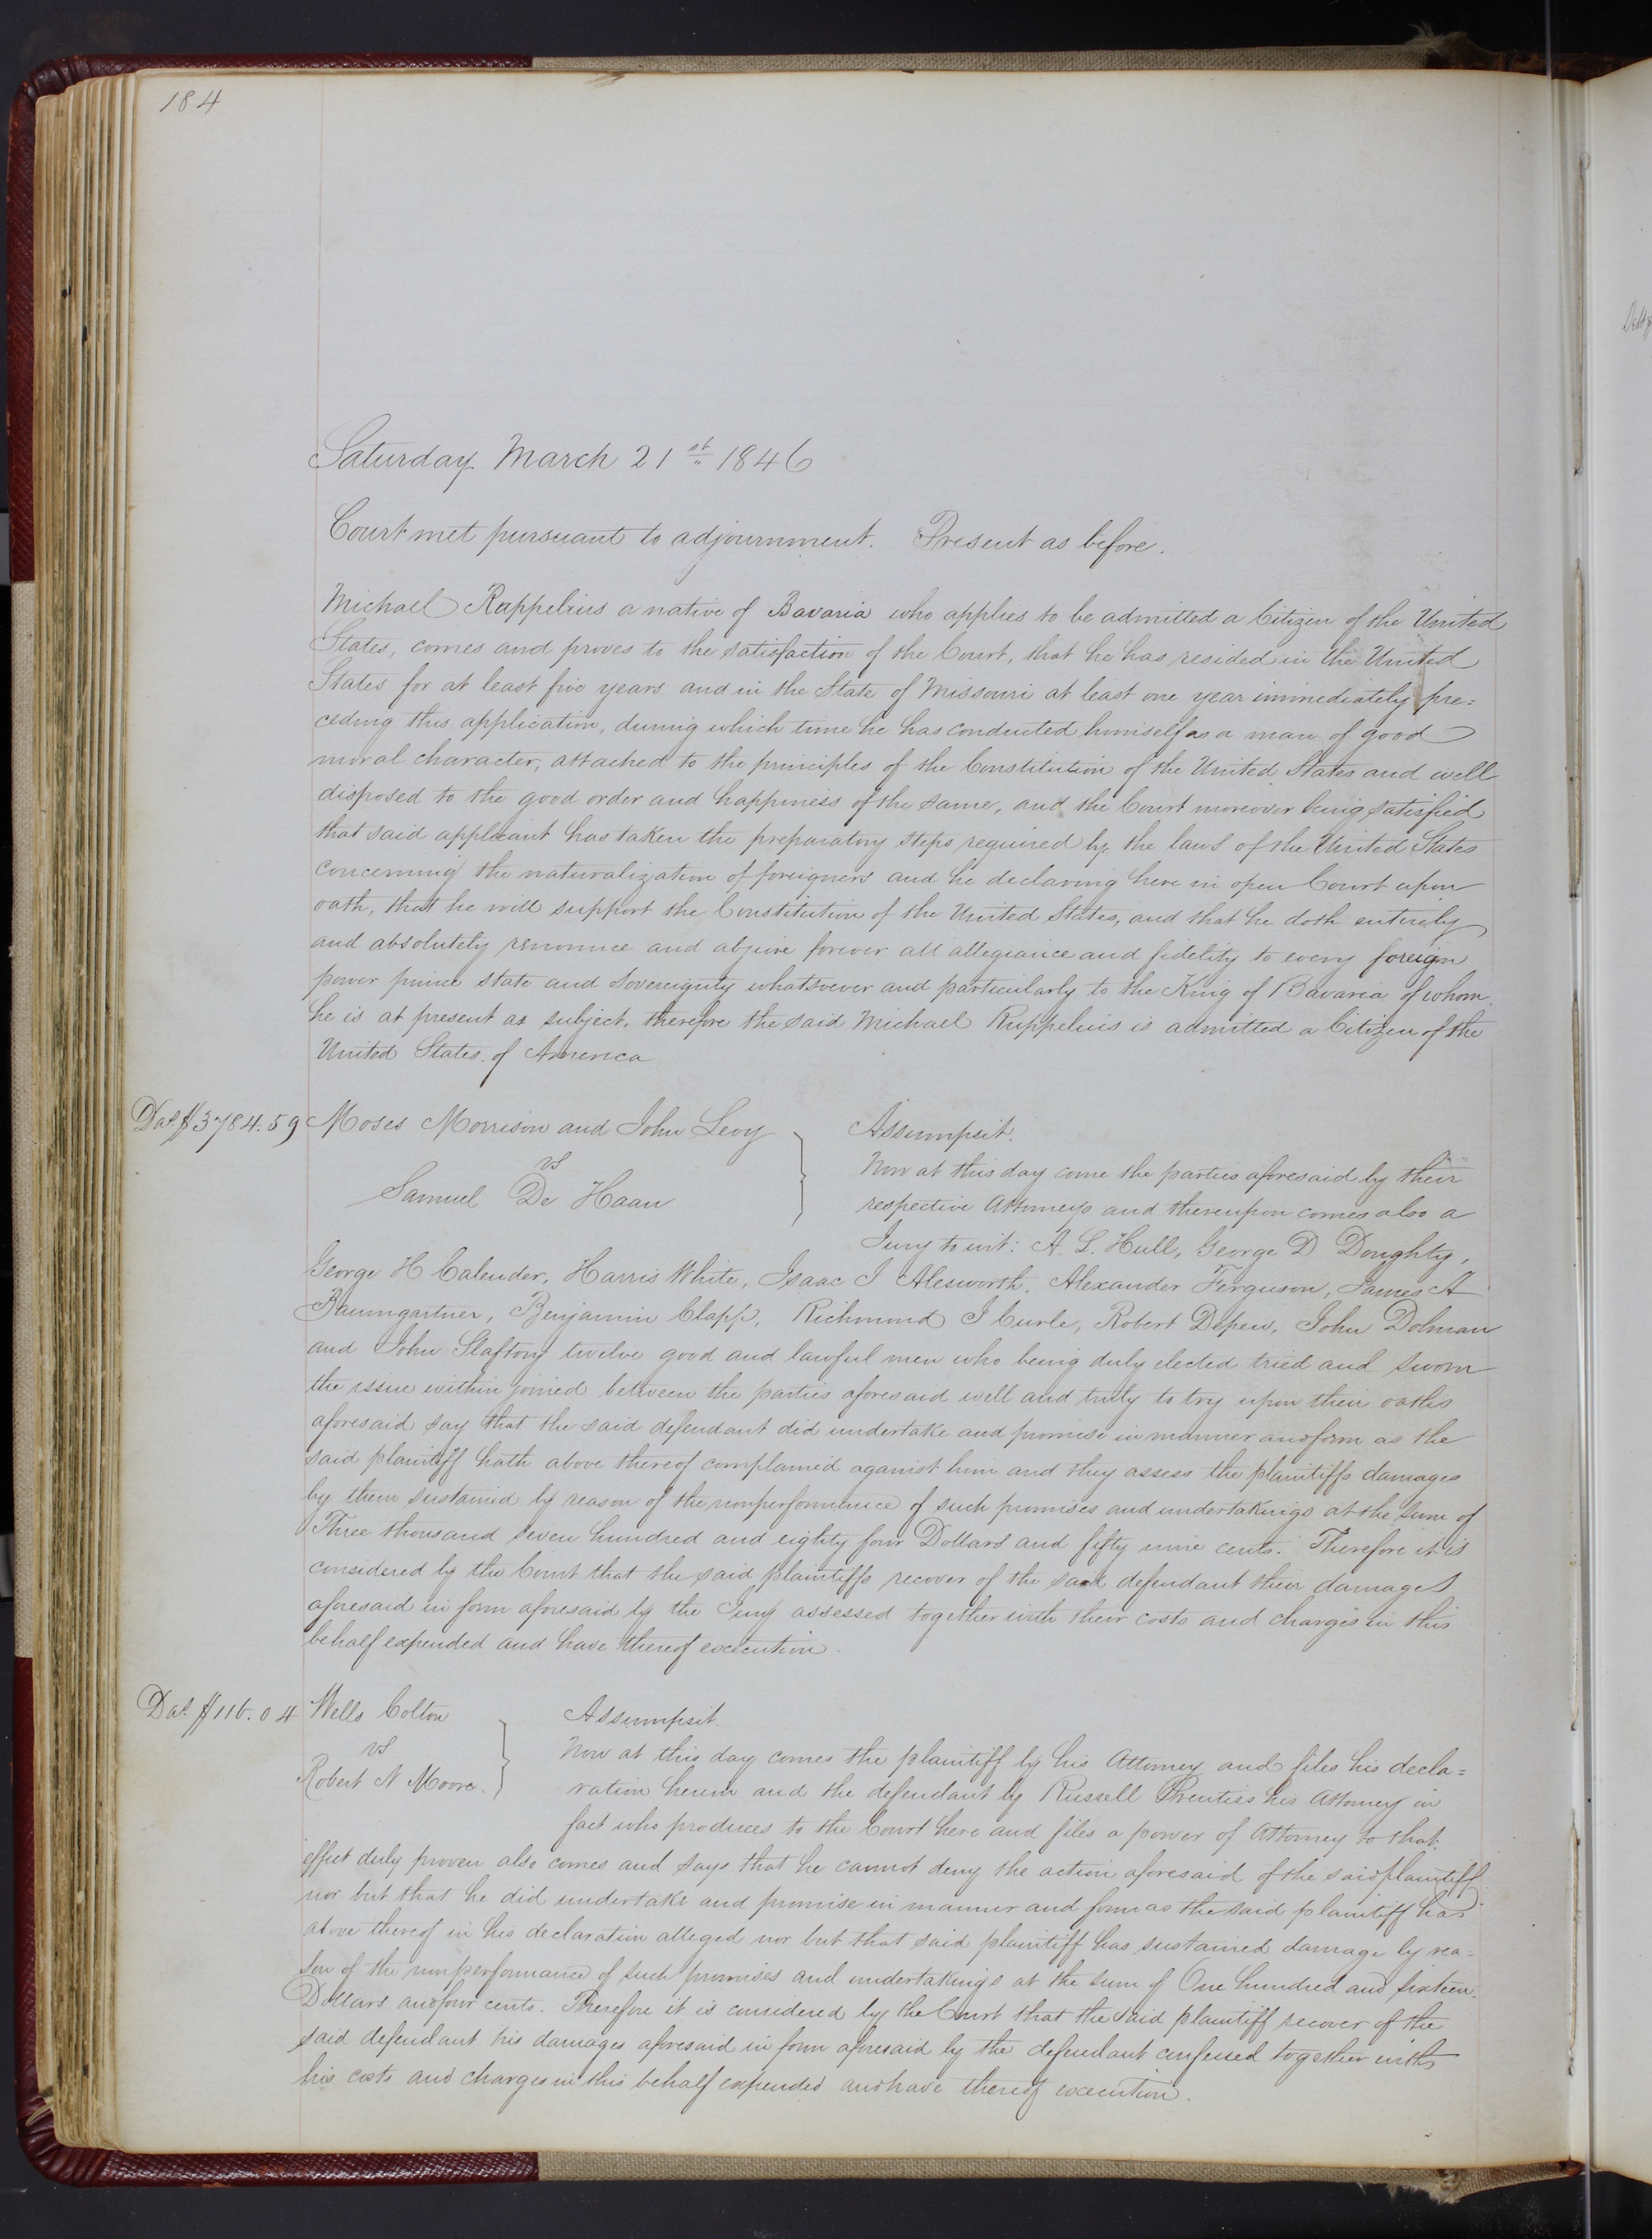 184
Saturday March 21st 1846
Court met pursuant to adjournment. Present as before.
Michael Ruppelius a native of Bavaria who applies to be admitted a Citizen of the United
States, comes and proves to the satisfaction of the Court, that he has resided in the United
States for at least five years and in the State of Missouri at least one year immediately pre=
ceding this application, during which time he has conducted himself as a man of good
moral character, attached to the principles of the Constitution of the United States and well
disposed to the good order and happiness of the same, and the Court moreover being satisfied
that said applicant has taken the preparatory steps required by the laws of the United States
concerning the naturalization of foreigners and he declaring here in open Court upon
oath, that he will support the Constitution of the United States, and that he doth entirely
and absolutely renounce and abjure forever all allegiance and fidelity to every foreign
power prince state and sovereignty whatsoever and particularly to the King of Bavaria of whom
he is at present as subject, therefore the said Michael Ruppelius is admitted a Citizen of the
United States of America
Das $3784.59 Moses Morrison and John Levy
vs
Samuel De Haan
Assumpsit.
Now at this day come the parties aforesaid by their
respective Attorneys and thereupon comes also a
Jury to wit: A. L. Hull, George D Doughty,
George H Calender, Harris White, Isaac J Alesworth, Alexander Ferguson, James A
Baumgartner, Benjamin Clapp, Richmond J Curle, Robert Depew, John Dolman
and John twelve good and lawful men who being duly elected tried and sworn
the issue within joined between the parties aforesaid well and truly to try upon their oaths
aforesaid say that the said defendant did undertake and promise in manner and form as the
said plaintiff hath above thereof complained against him and they assess the plaintiffs damages
by them sustained by reason of the nonperformance of such promises and undertakings at the sum of
Three thousand seven hundred and eighty four Dollars and fifty nine cents. Therefore it is
considered by the Court that the said plaintiffs recover of the said defendant their damages
aforesaid in form aforesaid by the Jury assessed together with their costs and charges in this
behalf expended and have thereof execution.
Das $116.04 Wells Colton
vs
Robert N Moore.
Assumpsit.
Now at this day comes the plaintiff by his Attorney and files his decla=
ration herein and the defendant by Russell Prentiss his Attorney in
fact who produces to the Court here and files a power of Attorney to that
effect duly proven also comes and says that he cannot deny the action aforesaid of the said plaintiff
nor but that he did undertake and promise in manner and form as the said plaintiff has
above thereof in his declaration alleged nor but that said plaintiff has sustained damage by rea=
son of the nonperformance of such promises and undertakings at the sum of One hundred and sixteen
Dollars and four cents. Therefore it is considered by the Court that the said plaintiff recover of the
said defendant his damages aforesaid in form aforesaid by the defendant confessed together with
his costs and charges in this behalf expended and have thereof execution.